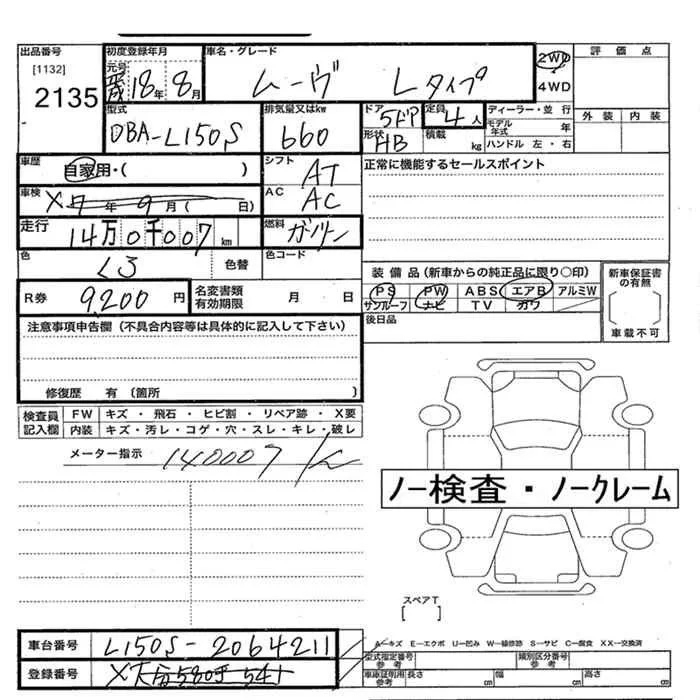 出品番号 初度登録年月 車名・グレード 2WD 評価点
[1132] 元号 平成 18年 8月 ムーヴ Lタイプ 4WD
2135
型式 排気量又はkw ドア 5ドア 定員 4人 ディーラー・並行 外装 内装
DBA-L150S 660 形状 HB 積載 kg モデル年式 年
ハンドル 左・右
車歴 自家用・( ) シフト AT 正常に機能するセールスポイント
車検 X 7年 9月( 日) AC AC
走行 14万0千007km 燃料 ガソリン
色 色替 色コード
装備品(新車からの純正品に限り○印) 新車保証書の有無
R券 9,200円 名変書類有効期限 月 日
PS PW ABS エアB アルミW
サンルーフ ナビ TV カワ
車載不可
後日品
注意事項申告欄(不具合内容等は具体的に記入して下さい)
修復歴 有 〔箇所 〕
検査員記入欄 FW キズ・飛石・ヒビ割・リペア跡・X要
内装 キズ・汚レ・コゲ・穴・スレ・キレ・破レ
メーター指示 140007
ノー検査・ノークレーム
スペアT
[ ]
車台番号 L150S-2064211
A―キズ E―エクボ U―凹み W―補修跡 S―サビ C―腐食 XX―交換済
型式指定番号 参考 類別区分番号 参考
登録番号
車庫証明用 参考 長さ cm 幅 cm 高さ cm